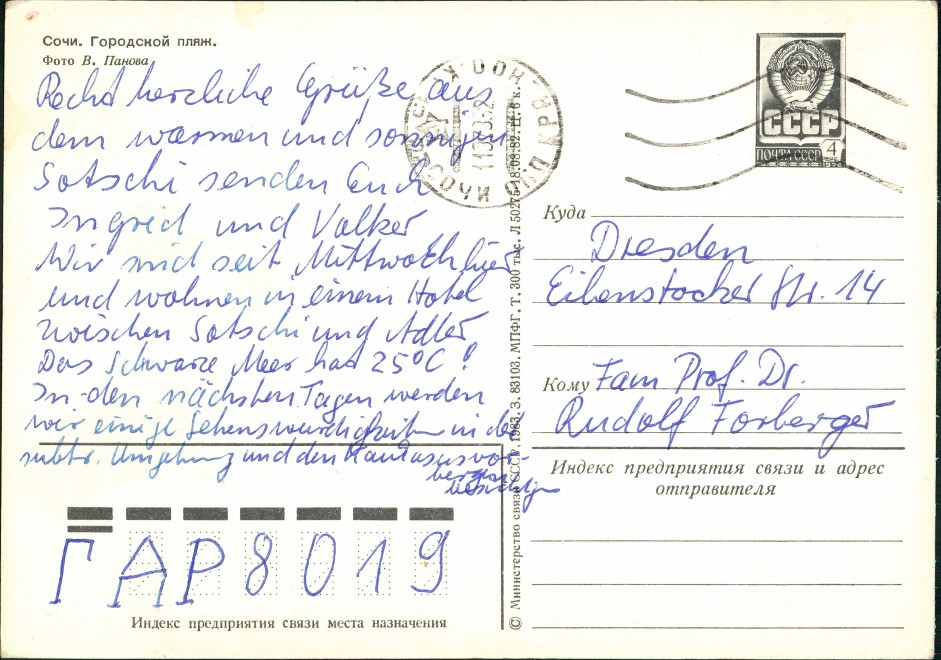 Сочи. Городской пляж.
Фото В. Панова
Recht herzliche Grüße aus
dem warmen und sonnigen
Sotschi senden Euch
Ingrid und Volker
Wir sind seit Mittwoch hier
und wohnen in einem Hotel
zwischen Sotschi und Adler.
Das Schwarze Meer hat 25°C!
In den nächsten Tagen werden
wir einige Sehenswürdigkeiten in der
subtr. Umgebung und den Kaukasusvor-
bergen
besichtigen
ГДР8019
Индекс предприятия связи места назначения
© Министерство связи СССР, 1983. З. 83103. МПФГ. Т. 300 тыс. Л 50275 18.08.82. Ц. 6 к.
СССР
ПОЧТА СССР 4
Куда
Dresden
Eibenstocker Str. 14
Кому Fam Prof. Dr.
Rudolf Forberger
Индекс предприятия связи и адрес
отправителя